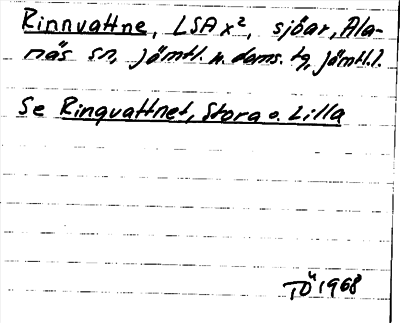 Rinnvattne, LSA x², sjöar, Ala-
näs sn, jämtl. n. doms. tg, jämtl. l.
Se Ringvattnet, Stora o. Lilla
TÖ 1968